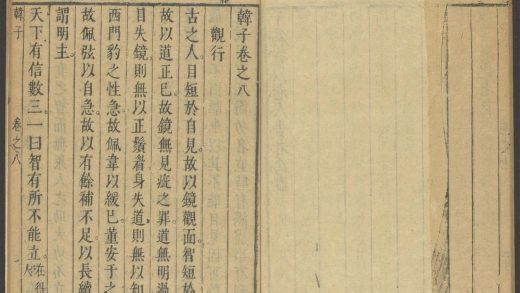 韓子卷之八
觀行
古之人目短於自見故以鏡觀面智短於
故以道正己故鏡無見疵之罪道無明過
目失鏡則無以正鬚眉身失道則無以知
西門豹之性急故佩韋以緩己董安于之
故佩弦以自急故以有餘補不足以長續
謂明主
天下有信數三一曰智有所不能立在得人
韓子 卷之八